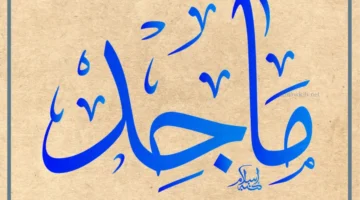 مَاجِد